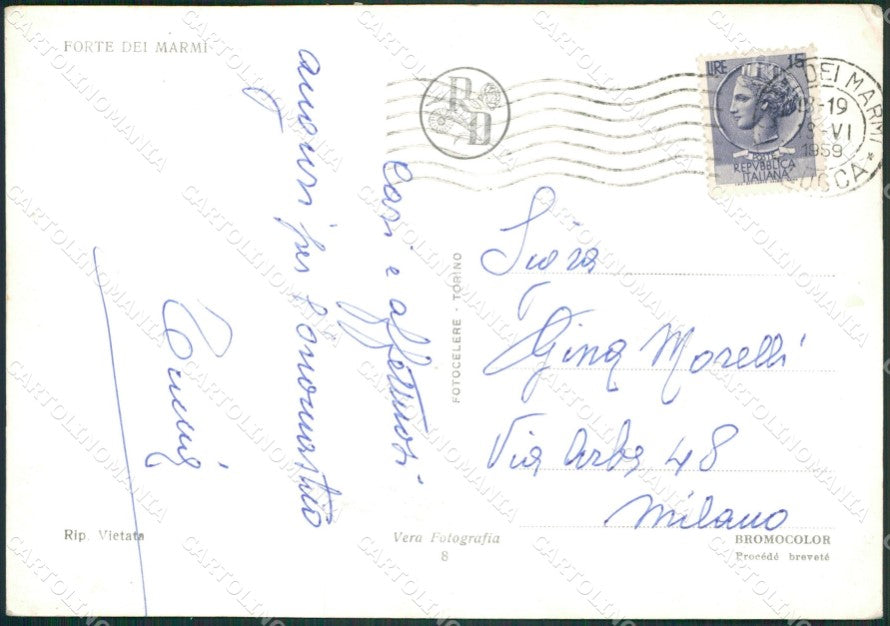 FORTE DEI MARMI
Cari e affettuosi
auguri per l'onomastico
FOTOCELERE - TORINO
LIRE 15
POSTE
REPVBBLICA
ITALIANA
DEI MARMI
18-19
VI
1959
LUCCA
Gina Morelli
Via Arba 48
Milano
Rip. Vietata
Vera Fotografia
8
BROMOCOLOR
Procédé breveté
CARTOLINOMANIA